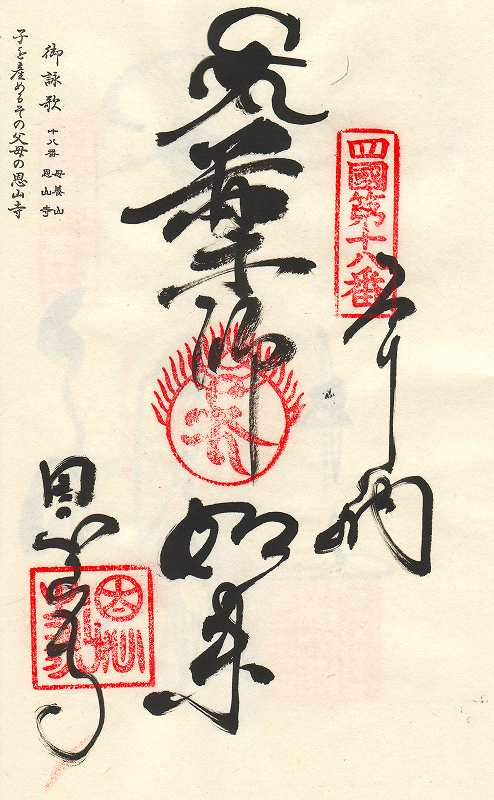 四國第十八番
奉納
薬師如来
恩山寺
御詠歌 十八番 母養山 恩山寺
子を産めるその父母の恩山寺